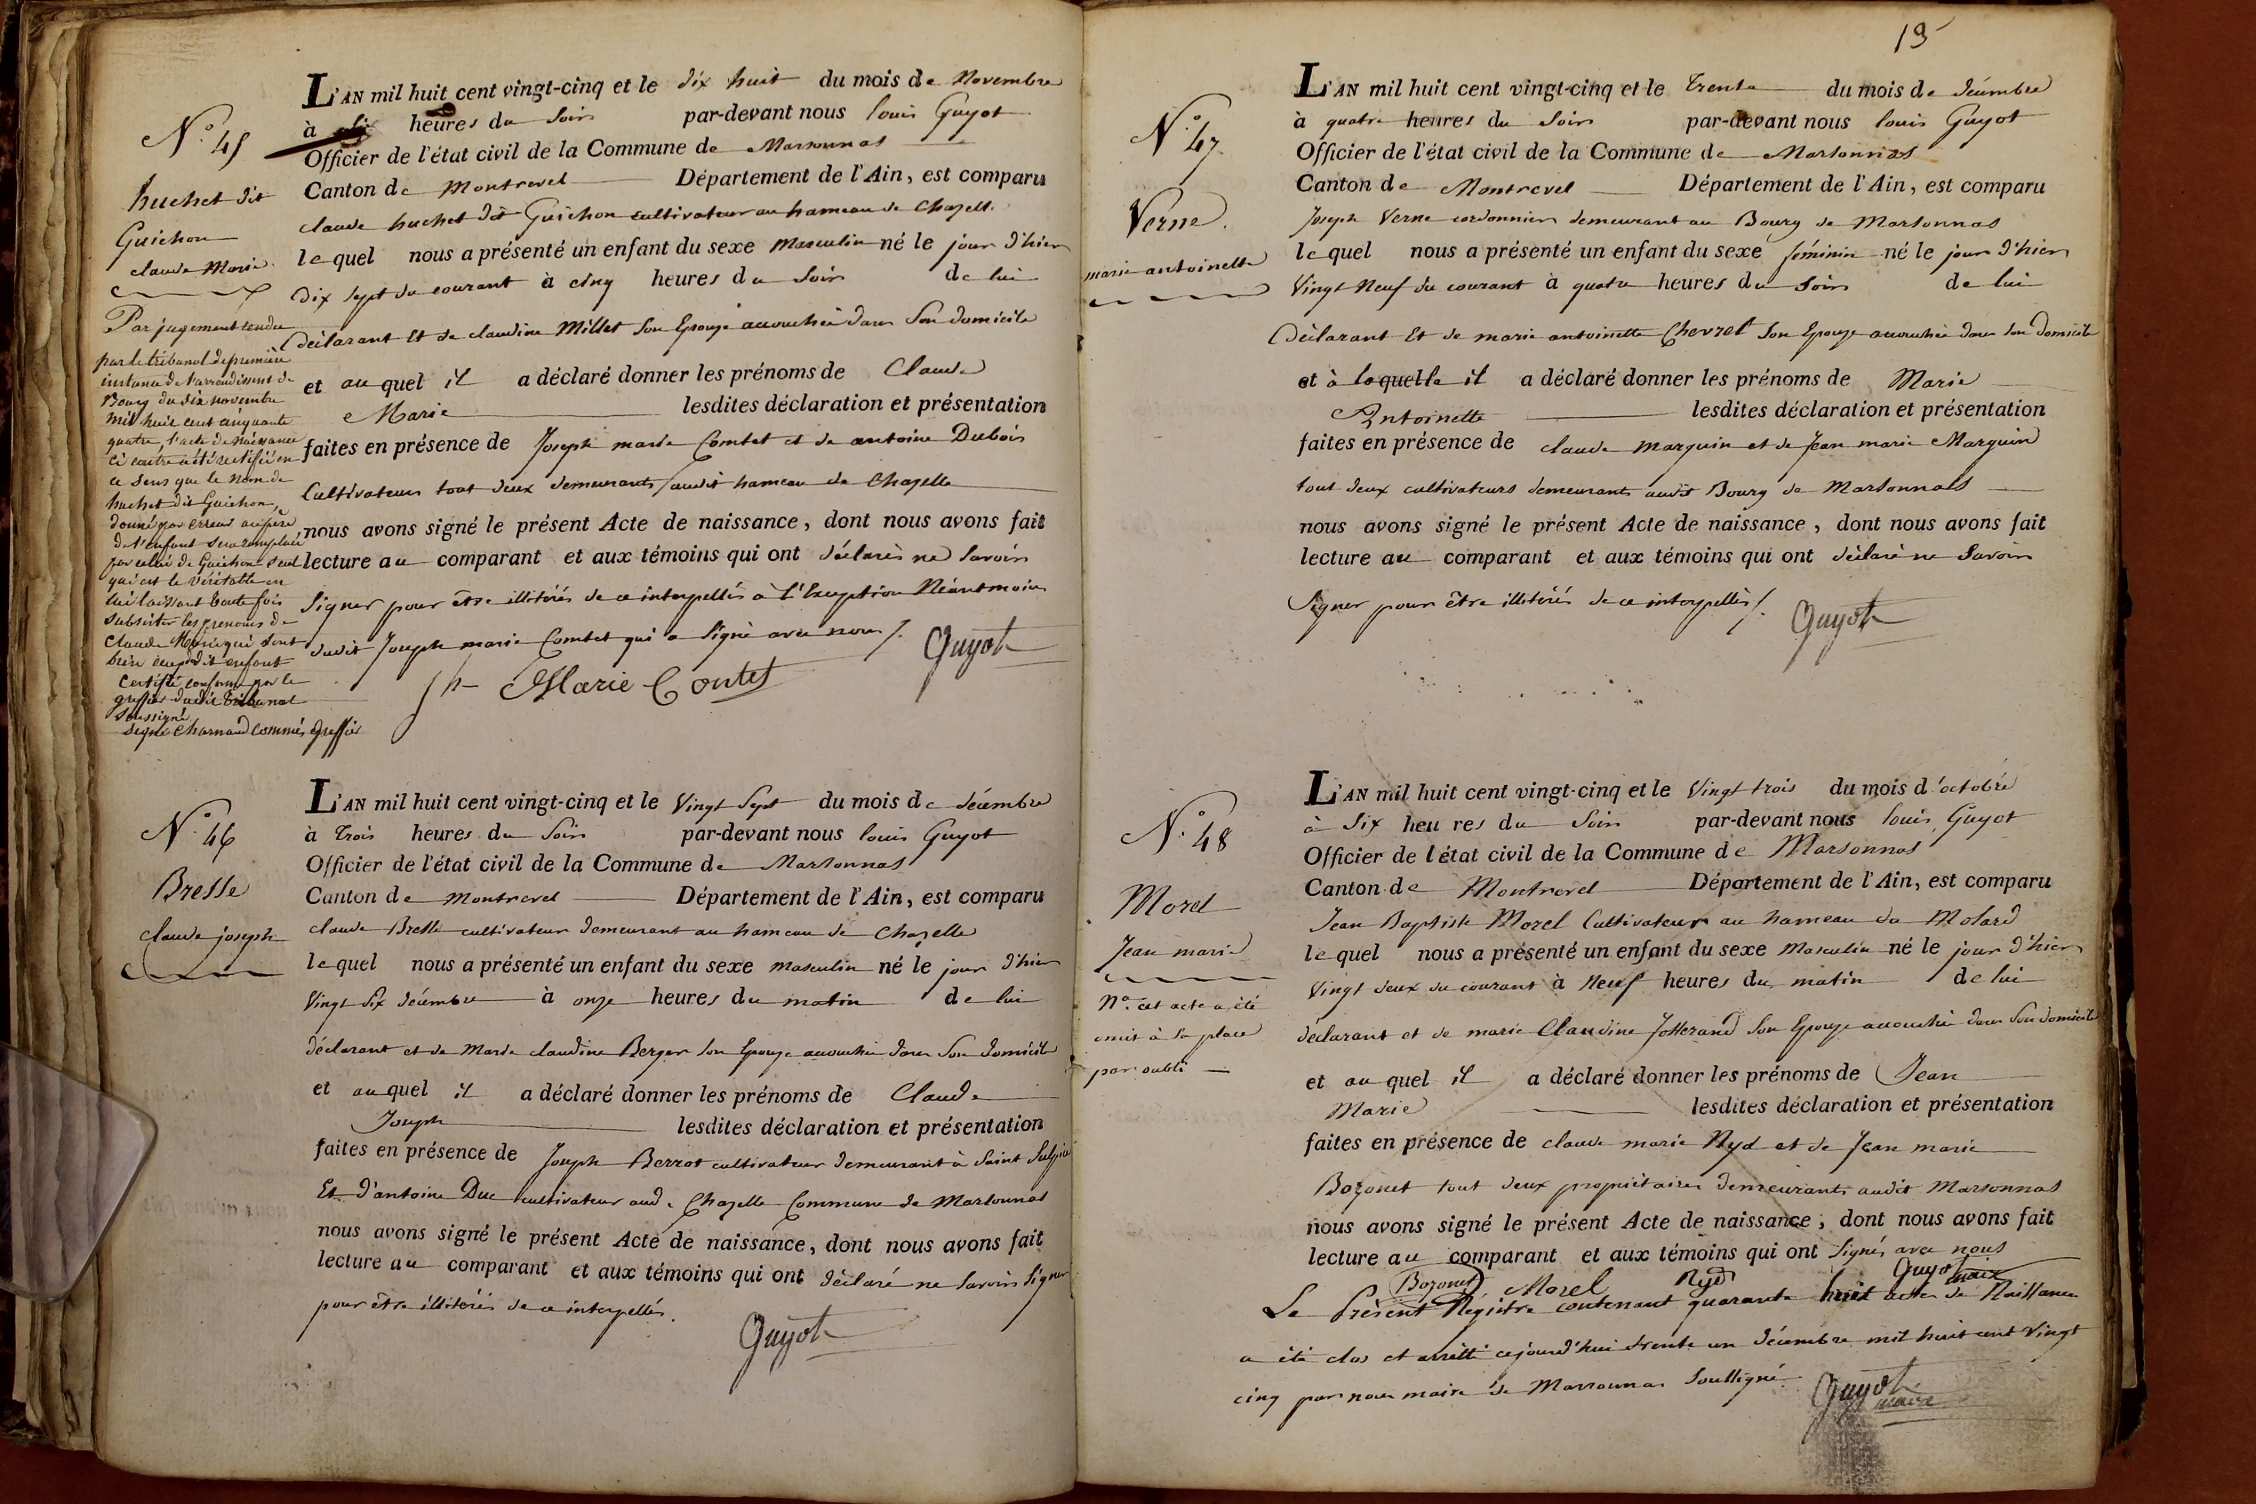 N.º 45
huchet dit
Guichon
claude Marie
Par jugement rendu
par le tribunal de première
instance de l'arrondissement de
Bourg du dix novembre
mil huit cent cinquante
quatre, l'acte de naissance
ci contre a été rectifié en
ce sens que le nom de
huchet dit Guichon,
donné par erreur au père
de l'enfant sera remplacé
par celui de Guichon seul
qui est le véritable en
lui laissant toutefois
subsister les prenoms de
Claude Marie qui sont
bien ceux dudit enfant
Certifié conforme par le
greffier dudit tribunal
soussigné
signé Charnaud commis Greffier
L'AN mil huit cent vingt-cinq et le dix huit du mois de Novembre
à heures du Soir par-devant nous louis Guyot
Officier de l'état civil de la Commune de Marsonnas
Canton de Montrevel Département de l'Ain, est comparu
claude huchet dit Guichon cultivateur au hameau de Chazelle
lequel nous a présenté un enfant du sexe Masculin né le jour d'hier
dix sept du courant à cinq heures du Soir de lui
déclarant Et de claudine Millet Son Epouse accouchée dans Son domicile
et auquel il a déclaré donner les prénoms de Claude
Marie lesdites déclaration et présentation
faites en présence de Joseph marie Combet et de antoine Dubois
Cultivateurs tout deux demeurants audit hameau de Chazelle
nous avons signé le présent Acte de naissance, dont nous avons fait
lecture au comparant et aux témoins qui ont déclarés ne Savoir
Signer pour être illitérés de ce interpellés à l'Exception Néantmoins
dudit Joseph marie Combet qui a Signé avec nous /.
Guyot
Jh Marie Contet
N.º 46
Bresse
claude joseph
L'AN mil huit cent vingt-cinq et le Vingt Sept du mois de décembre
à trois heures du Soir par-devant nous louis Guyot
Officier de l'état civil de la Commune de Marsonnas
Canton de Montrevel Département de l'Ain, est comparu
claude Bresse cultivateur demeurant au hameau de Chazelle
lequel nous a présenté un enfant du sexe masculin né le jour d'hier
Vingt Six décembre à onze heures du matin de lui
déclarant et de Marie claudine Berger Son Epouse accouchée dans Son domicile
et auquel il a déclaré donner les prénoms de Claude
Joseph lesdites déclaration et présentation
faites en présence de Joseph Berrot cultivateur demeurant à Saint Sulpice
Et d'antoine Duc cultivateur aud. Chazelle Commune de Marsonnas
nous avons signé le présent Acte de naissance, dont nous avons fait
lecture au comparant et aux témoins qui ont déclaré ne Savoir Signer
pour être illitérés de ce interpellés.
Guyot
19
N.º 47
Verne
marie antoinette
L'AN mil huit cent vingt-cinq et le trente du mois de décembre
à quatre heures du Soir par-devant nous louis Guyot
Officier de l'état civil de la Commune de Marsonnas
Canton de Montrevel Département de l'Ain, est comparu
Joseph Verne cordonnier demeurant au Bourg de Marsonnas
lequel nous a présenté un enfant du sexe féminin né le jour d'hier
Vingt Neuf du courant à quatre heures du Soir de lui
déclarant Et de marie antoinette Chevret Son Epouse accouchée dans Son domicile
et à laquelle il a déclaré donner les prénoms de Marie
Antoinette lesdites déclaration et présentation
faites en présence de claude Marguin et de Jean marie Marguin
tout deux cultivateurs demeurants audit Bourg de Marsonnas
nous avons signé le présent Acte de naissance, dont nous avons fait
lecture au comparant et aux témoins qui ont déclaré ne Savoir
Signer pour être illitérés de ce interpellés /.
Guyot
N.º 48
Morel
Jean marie
Nª. cet acte a été
omis à Sa place
par oubli
L'AN mil huit cent vingt-cinq et le Vingt trois du mois d'octobre
à Six heures du Soir par-devant nous louis Guyot
Officier de l'état civil de la Commune de Marsonnas
Canton de Montrevel Département de l'Ain, est comparu
Jean Baptiste Morel Cultivateur au hameau du Molard
lequel nous a présenté un enfant du sexe Masculin né le jour d'hier
Vingt deux du courant à Neuf heures du matin de lui
déclarant et de marie Claudine Josserand Son Epouse accouchée dans Son domicile
et auquel il a déclaré donner les prénoms de Jean
Marie lesdites déclaration et présentation
faites en présence de claude marie Nyd et de Jean marie
Bozonet tout deux propriétaires demeurants audit Marsonnas
nous avons signé le présent Acte de naissance, dont nous avons fait
lecture au comparant et aux témoins qui ont Signés avec nous
Bozonet Morel Nyd Guyot maire
Le Présent Régistre contenant quarante huit actes de Naissance
a été clos et arrêtté cejourd'hui trente un décembre mil huit cent Vingt
cinq par nous maire de Marsonnas Soussigné
Guyot
maire